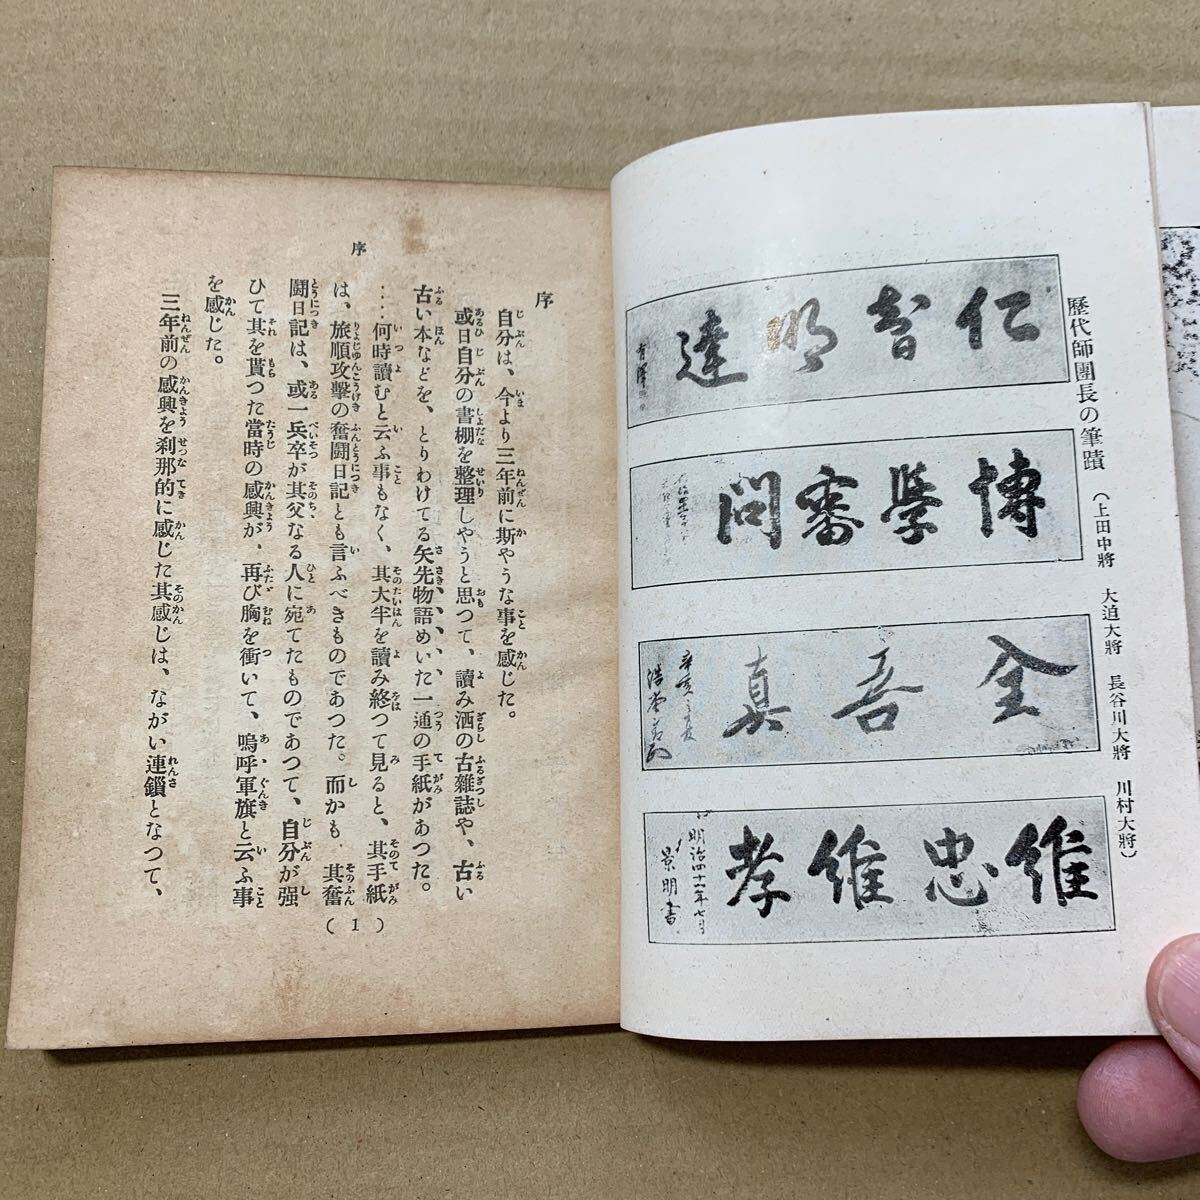 歷代師團長の筆蹟 (上田中將 大迫大將 長谷川大將 川村大將)
仁智明達
博學審問
全吾真
辛亥之夏
維忠維孝
明治四十一年七月
景明書
序
序
自分は、今より三年前に斯やうな事を感じた。
或日自分の書棚を整理しやうと思つて、讀み洒の古雜誌や、古い
古い本などを、とりわけてる矢先物語めいた一通の手紙があつた。
…何時讀むと云ふ事もなく、其大半を讀み終つて見ると、其手紙
は、旅順攻擊の奮鬪日記とも言ふべきものであつた。而かも、其奮
鬪日記は、或一兵卒が其父なる人に宛てたものであつて、自分が强
ひて其を貰つた當時の感興が、再び胸を衝いて、嗚呼軍旗と云ふ事
を感じた。
三年前の感興を刹那的に感じた其感じは、ながい連鎖となつて、
(1)